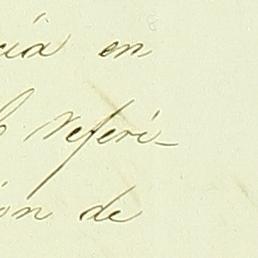 cia en
Referi-
ón de